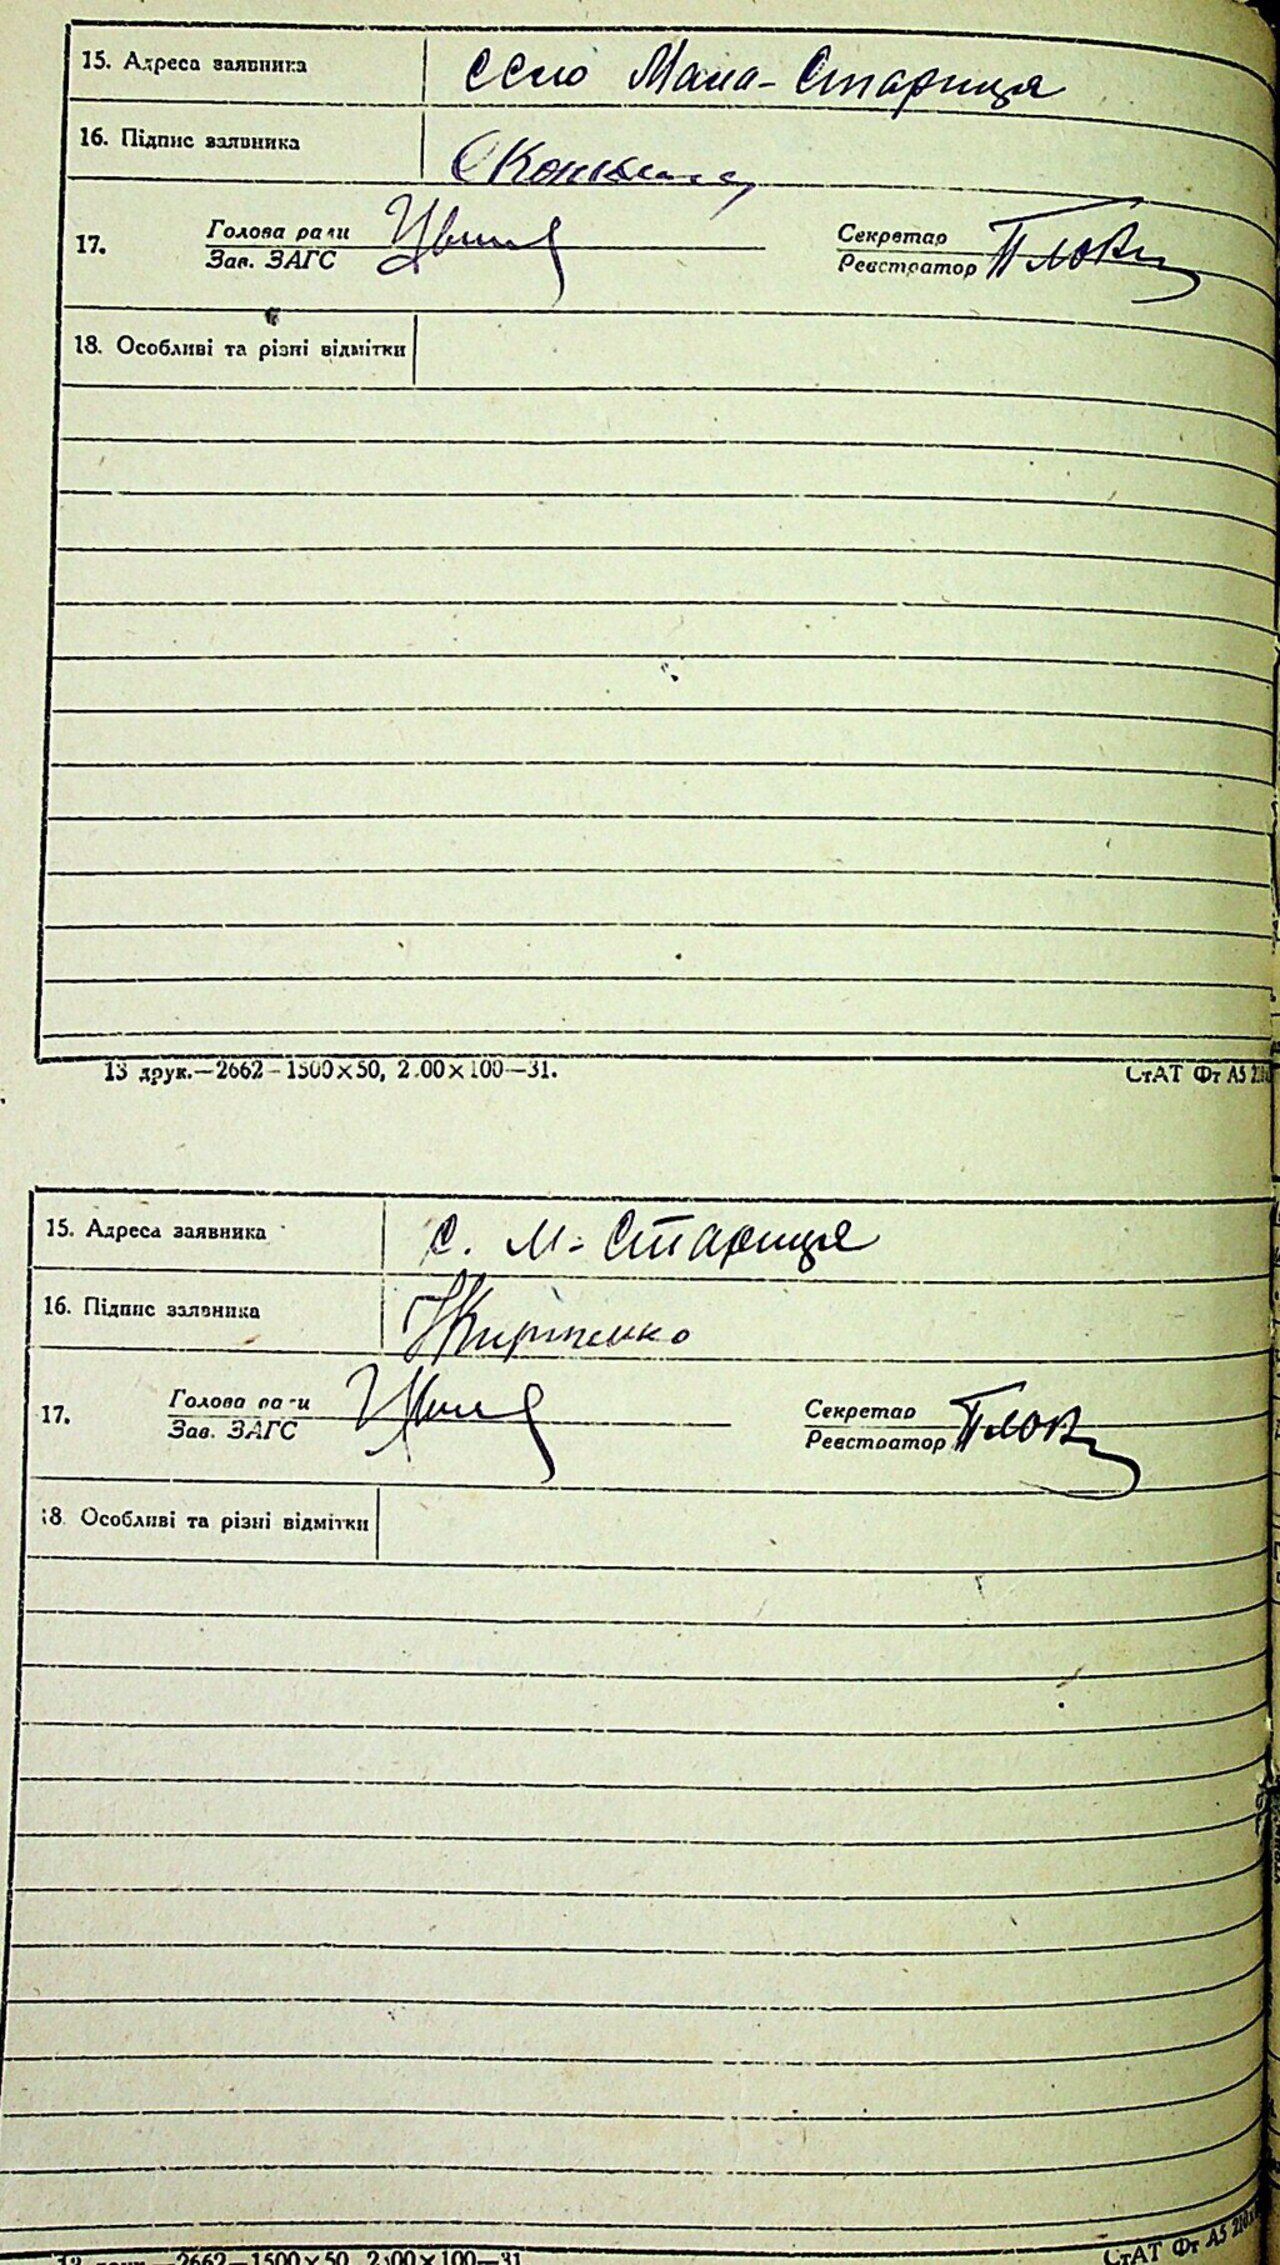 15. Адреса заявника село Мала-Стариця
16. Підпис заявника
Голова ради Секретар
17.
Зав. ЗАГС Реєстратор
18. Особливі та різні відмітки
13 друк.—2662—1500×50, 2.00×100—31. СтАТ Фт А5
15. Адреса заявника с. М-Стариця
16. Підпис заявника Кириченко
Голова ради Секретар
17.
Зав. ЗАГС Реєстратор
18. Особливі та різні відмітки
13 друк.—2662—1500×50, 2.00×100—31 СтАТ Фт А5